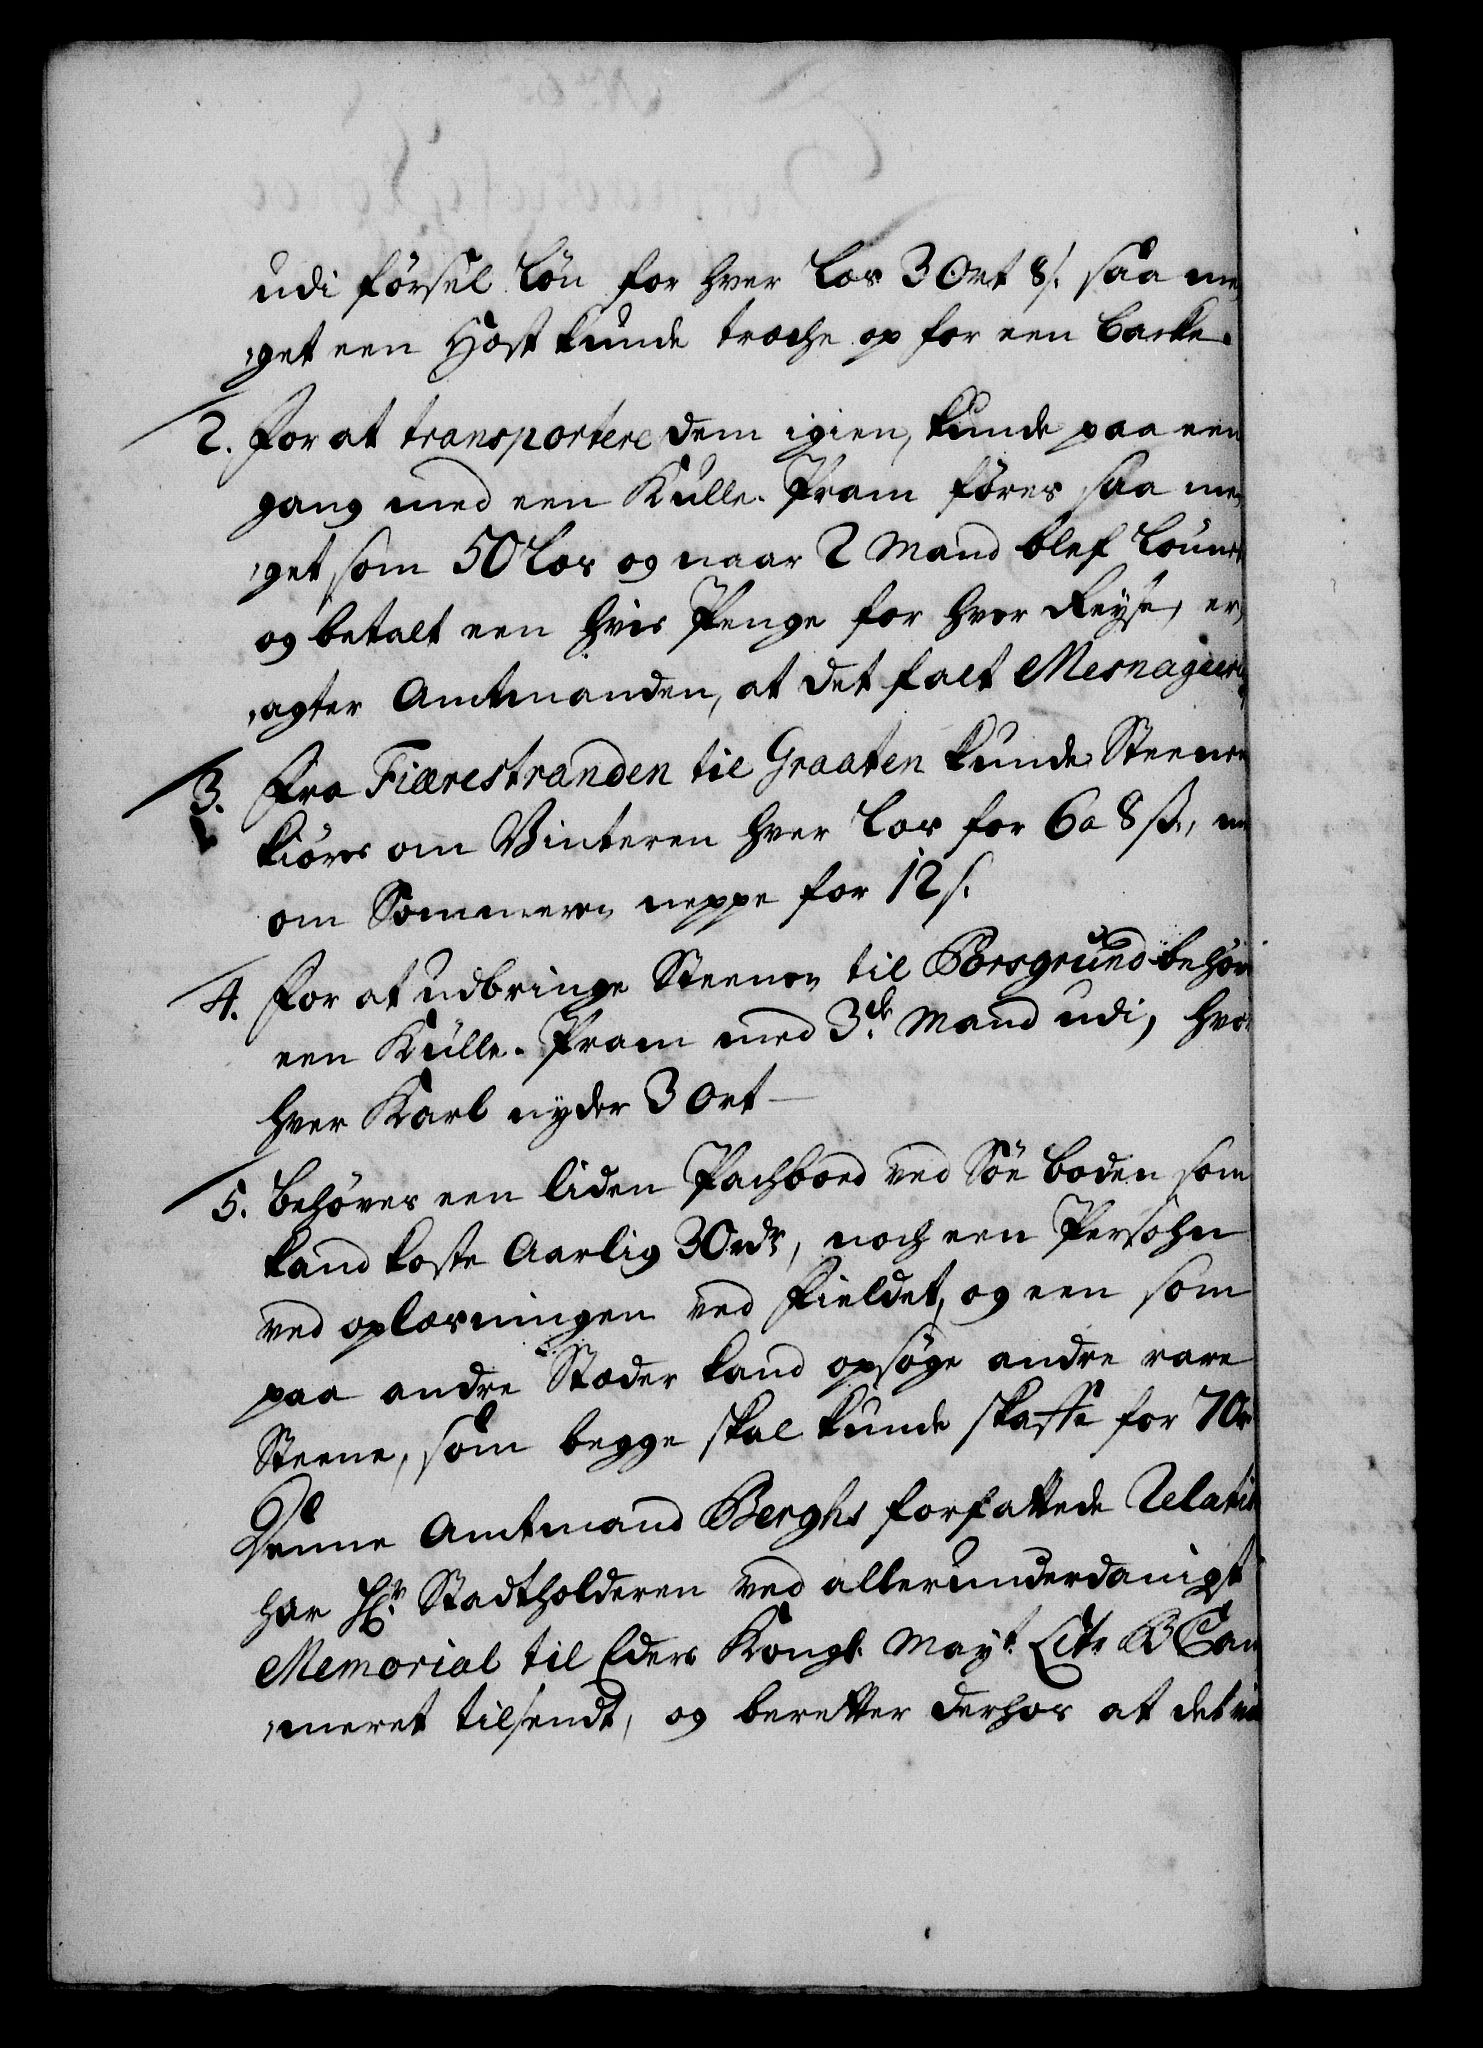 udi försel Lön for hver Las 3 Ort 8 s. saa me¬
¬get een Hæst kunde træche op for een backe.
2. For at transportere dem igien, kunde paa een
gang med een Kulle-Pram föres saa me¬
¬get som 50 Las og naar 2 Mand blef Lönnet
og betalt een vis Penge for hver Reyse, er¬
¬agter Amtmanden, at det falt Mesnagieri
3. Fra Fiærestranden til Graaten kunde Steenen
kiöres om Vinteren hver Las for 6 a 8 sk,
om Sommeren neppe for 12 s.
4. For at udbringe Steenen til Borsgrund behöv
een Kulle-Pram med 3de Mand udi, hvor
hver Karl nyder 3 Ort —
5. behöves een liden Pachboed ved Söe boden som
kand koste Aarlig 30 rdr, noch een Persohn
ved oplæsningen ved Fieldet, og een som
paa andre Stæder kand opsöge andre rare
Steene, som begge skal kunde skaffe for 70 r
Denne Amtmand Berghs forfattede Relati
har Hr. Stadtholderen ved allerunderdanigst
Memorial til Eders Kongl. May.t Litr B Cam
¬meret tilsendt, og beretter derhos at det